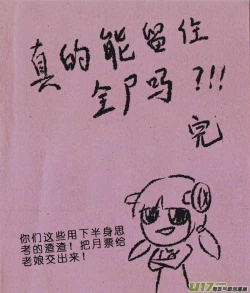 真的能留住
全尸吗?!!!
完
你们这些用下半身思
考的渣渣！把月票给
老娘交出来！
U17